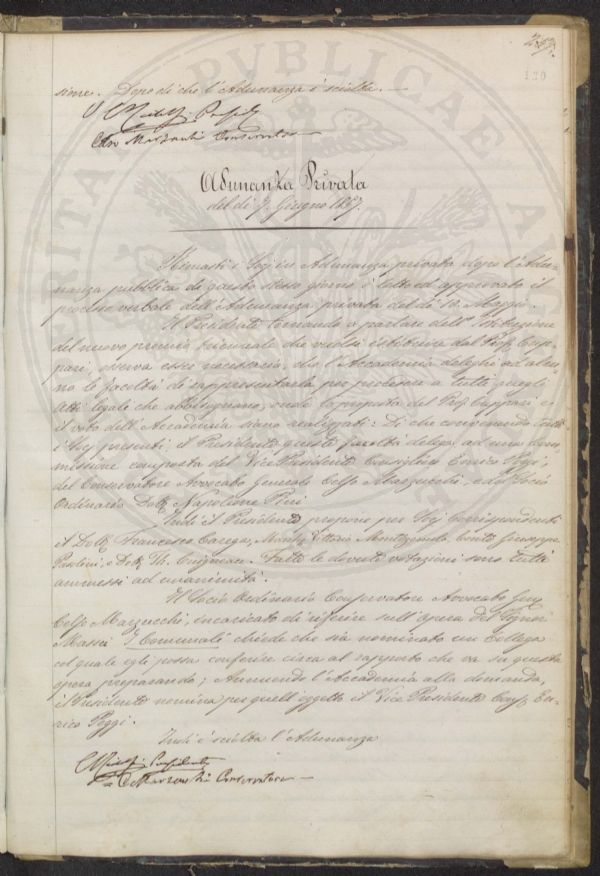 237.
130
sione. Dopo di che l'Adunanza è sciolta. —
C Ridolfi Presid
Marzucchi Conservatore —
Adunanza Privata
del dì 9. Giugno 1867.
Rimasti i Socj in Adunanza privata dopo l'Adu-
nanza pubblica di questo stesso giorno è letto ed approvato il
processo verbale dell'Adunanza privata del dì 12. Maggio.
Il Presidente tornando a parlare dell'Istituzione
del nuovo premio triennale che vedesi istituire dal Prof. Cup-
pari, osserva esser necessario, che l'Accademia deleghi ad alcu-
no le facoltà di rappresentarla per procedere a tutti quegli
atti legali che abbisognano, onde la proposta del Prof. Cuppari e
il voto dell'Accademia siano realizzati: Di che convenendo tutti
i Socj presenti, il Presidente queste facoltà delega ad una Com-
missione composta del Vice Presidente Consigliere Enrico Poggi,
del Conservatore Avvocato Generale Celso Marzucchi, e del Socio
Ordinario Dott. Napoleone Pini.
Indi il Presidente propone per Socj Corrispondenti
il Dott. Francesco Carega, March. Vittorio Conte Giuseppe
Pasolini, e Dott. Th. Fatte le dovute votazioni sono tutti
ammessi ad unanimità.
Il Socio Ordinario Conservatore Avvocato Gen.
Celso Marzucchi, incaricato di riferire sull'opera del Signor
Massei I Comunali chiede che sia nominato un Collega
col quale egli possa conferire circa al rapporto che va su questa
opera preparando; Annuendo l'Accademia alla domanda,
il Presidente nomina per quell'oggetto il Vice Presidente Cons. En-
rico Poggi.
Indi è sciolta l'Adunanza
C Ridolfi Presidente
C Marzucchi Conservatore —
PUBLICAE